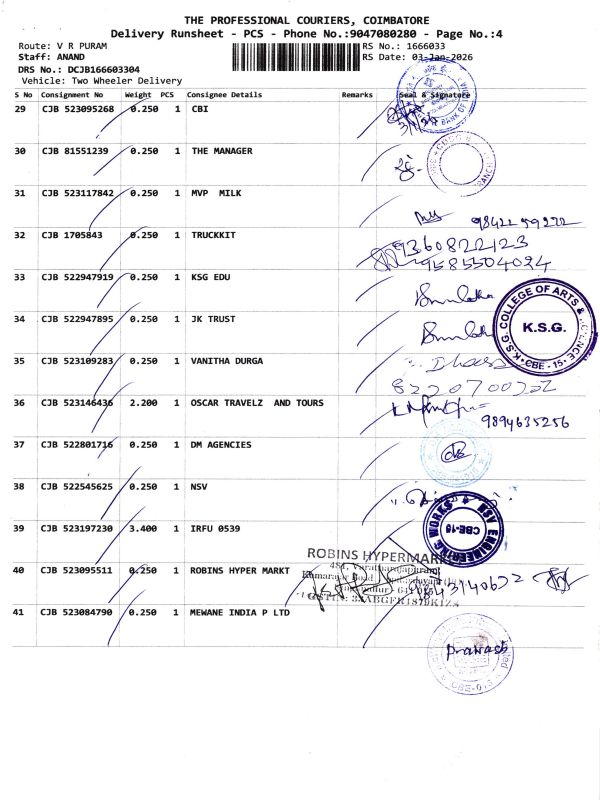 THE PROFESSIONAL COURIERS, COIMBATORE
Delivery Runsheet - PCS - Phone No.:9047080280 - Page No.:4
Route: V R PURAM
RS No.: 1666033
Staff: ANAND
RS Date: 03-Jan-2026
DRS No.: DCJB166603304
Vehicle: Two Wheeler Delivery
S No Consignment No Weight PCS Consignee Details Remarks Seal & Signature
29 CJB 523095268 0.250 1 CBI
30 CJB 81551239 0.250 1 THE MANAGER
31 CJB 523117842 0.250 1 MVP MILK
98422 59222
32 CJB 1705843 0.250 1 TRUCKKIT
9360822123
9585504024
33 CJB 522947919 0.250 1 KSG EDU
34 CJB 522947895 0.250 1 JK TRUST
K.S.G. COLLEGE OF ARTS &
K.S.G.
CBE - 15
35 CJB 523109283 0.250 1 VANITHA DURGA
36 CJB 523146436 2.200 1 OSCAR TRAVELZ AND TOURS
9894635256
37 CJB 522801716 0.250 1 DM AGENCIES
38 CJB 522545625 0.250 1 NSV
NSV ENGINEERING WORKS
CBE-16
39 CJB 523197230 3.400 1 IRFU 0539
ROBINS HYPERMAR
40 CJB 523095511 0.250 1 ROBINS HYPER MARKT
41 CJB 523084790 0.250 1 MEWANE INDIA P LTD
Prakash